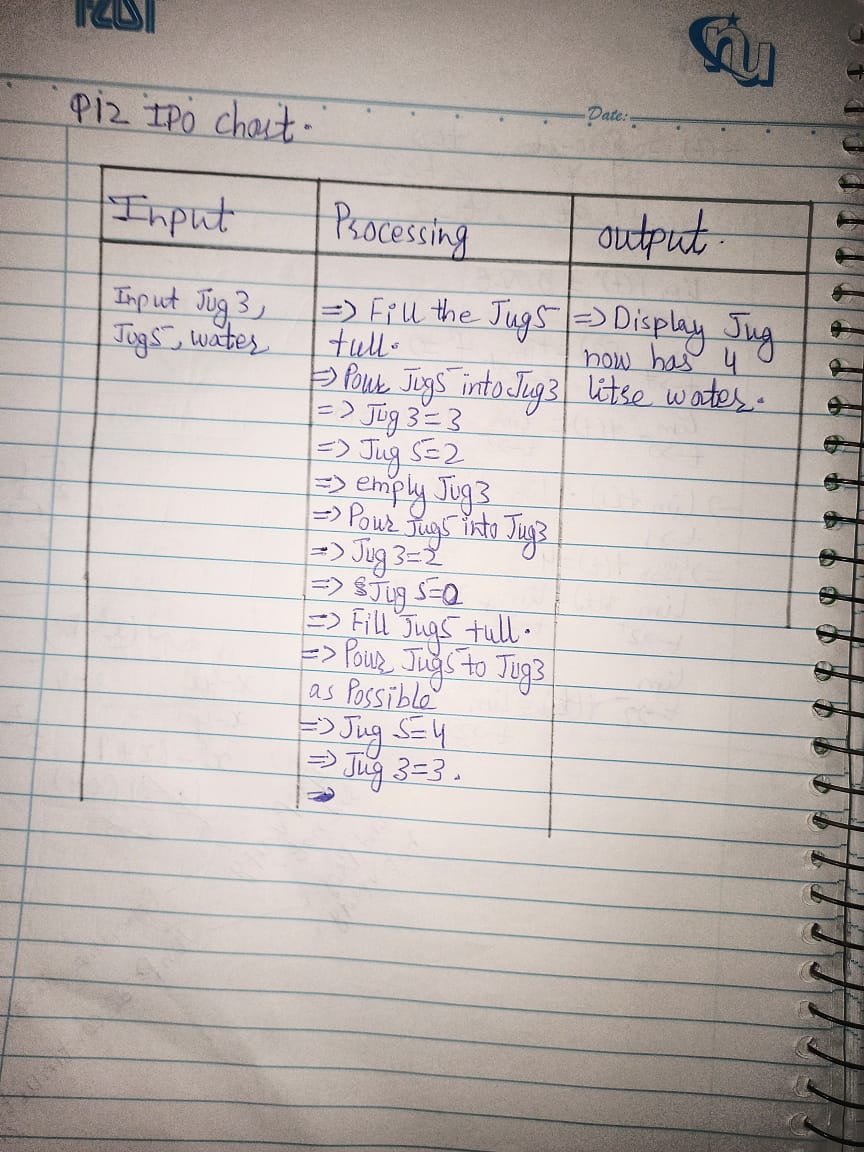 nu
Date:
φ12 IPO chart.
Input
Processing
output.
Input Jug 3,
Jug5, water
=> Fill the Jug5
full.
=> Pour Jug5 into Jug3
=> Jug 3=3
=> Jug 5=2
=> empty Jug3
=> Pour Jug5 into Jug3
=> Jug 3=2
=> Jug 5=0
=> Fill Jug5 full.
=> Pour Jug5 to Jug3
as Possible
=> Jug 5=4
=> Jug 3=3.
=>
=> Display Jug
now has 4
litre water.